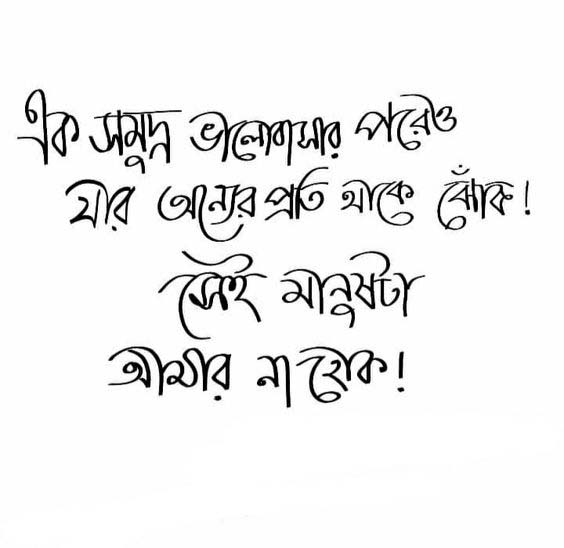 এক সমুদ্র ভালোবাসার পরেও
যার অন্যের প্রতি থাকে ঝোঁক!
সেই মানুষটা
আমার না হোক!